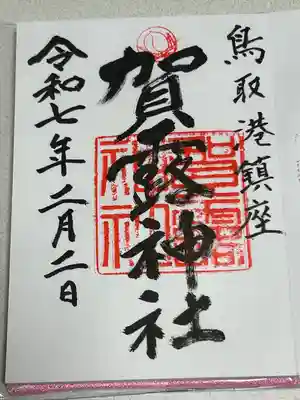 鳥取港鎮座
賀露神社
賀露神社
令和七年二月二日